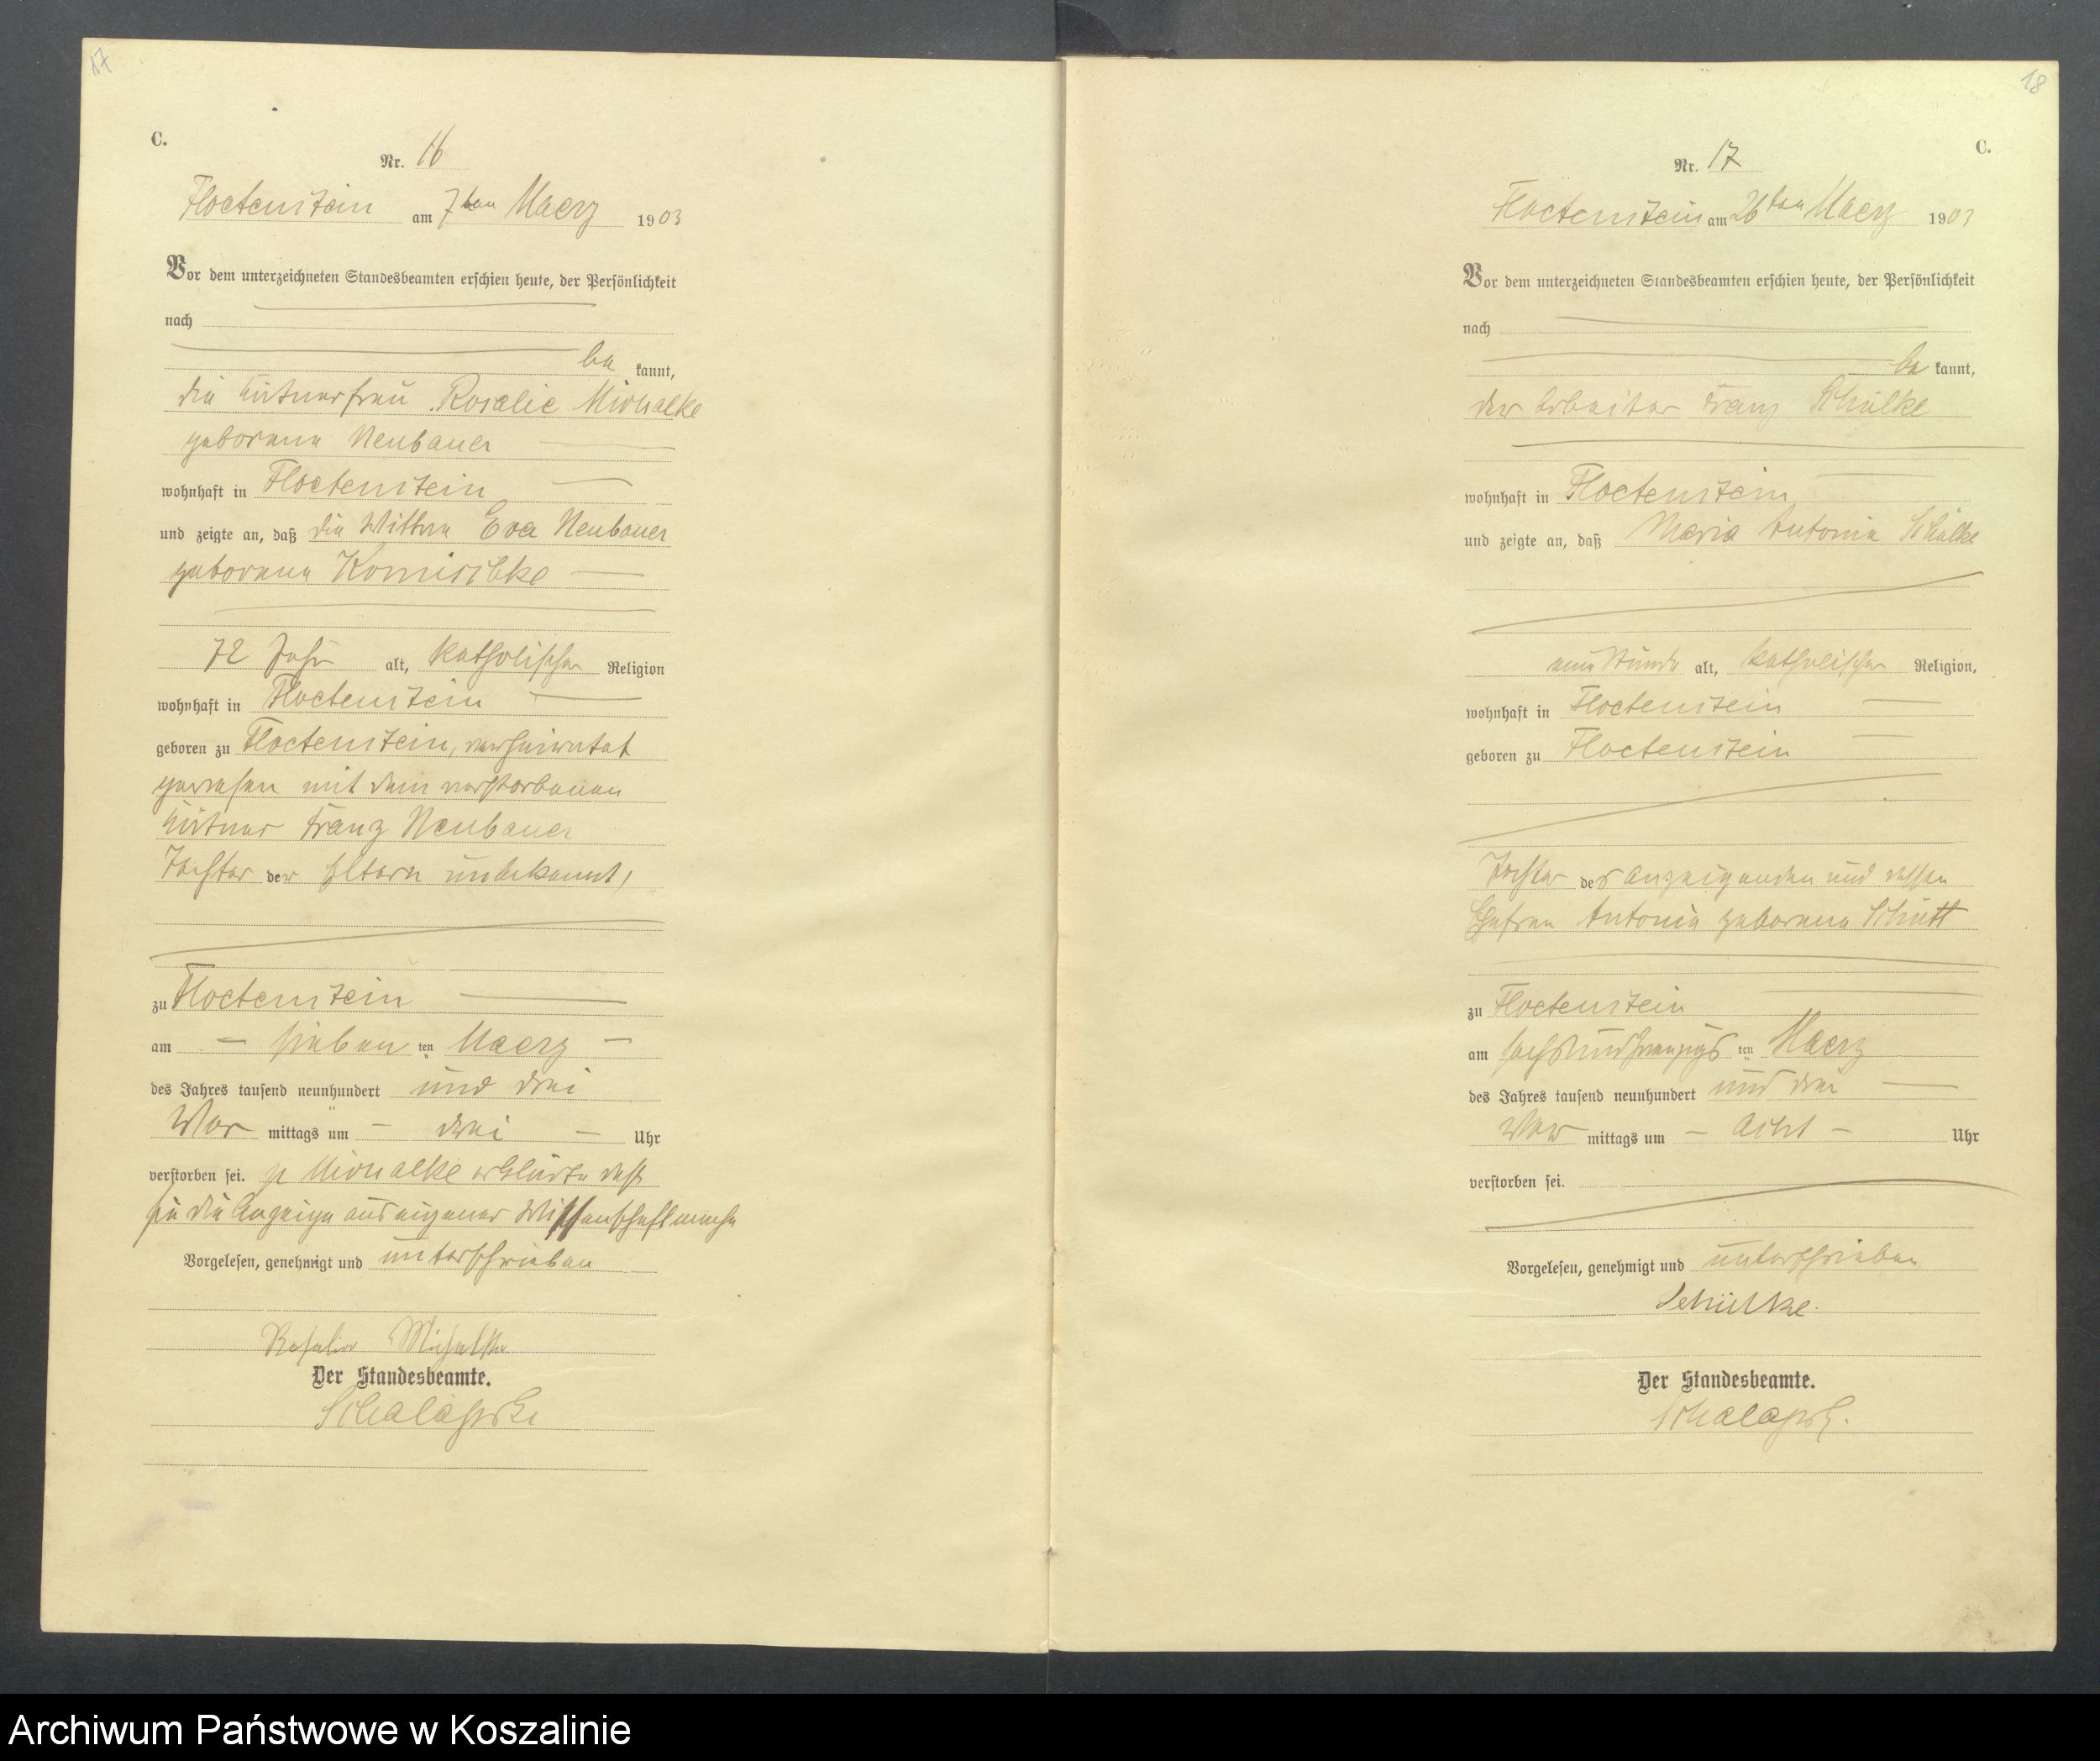 17
C.
Nr. 16
Floetenstein am 7ten Maerz 1903
Vor dem unterzeichneten Standesbeamten erschien heute, der Persönlichkeit
nach
be kannt,
die frau Rosalie
geborene Neubauer
wohnhaft in Floetenstein
und zeigte an, daß die Wittwe Eva Neubauer
geborene
72 Jahr alt, katholischer Religion
wohnhaft in Floetenstein
geboren zu Floetenstein, verheiratet
gewesen mit dem verstorbenen
Franz Neubauer
Tochter der Eltern unbekannt,
zu Floetenstein
am sieben ten Maerz
des Jahres tausend neunhundert und drei
Vor mittags um drei Uhr
verstorben sei. erklärte daß
sie die Anzeige aus eigener Wissenschaft mache
Vorgelesen, genehmigt und unterschrieben
Rosalie
Der Standesbeamte.
18
C.
Nr. 17
Floetenstein am 26ten Maerz 1903
Vor dem unterzeichneten Standesbeamten erschien heute, der Persönlichkeit
nach
be kannt,
der Arbeiter Franz Schülke
wohnhaft in Floetenstein
und zeigte an, daß Maria Antonie Schülke
Stunde alt, katholischer Religion,
wohnhaft in Floetenstein
geboren zu Floetenstein
Tochter des Anzeigenden und dessen
Ehefrau Antonie geborene Schütt
zu Floetenstein
am sechsundzwanzigs ten Maerz
des Jahres tausend neunhundert und drei
Vor mittags um acht Uhr
verstorben sei.
Vorgelesen, genehmigt und unterschrieben
Schülke.
Der Standesbeamte.
Archiwum Państwowe w Koszalinie